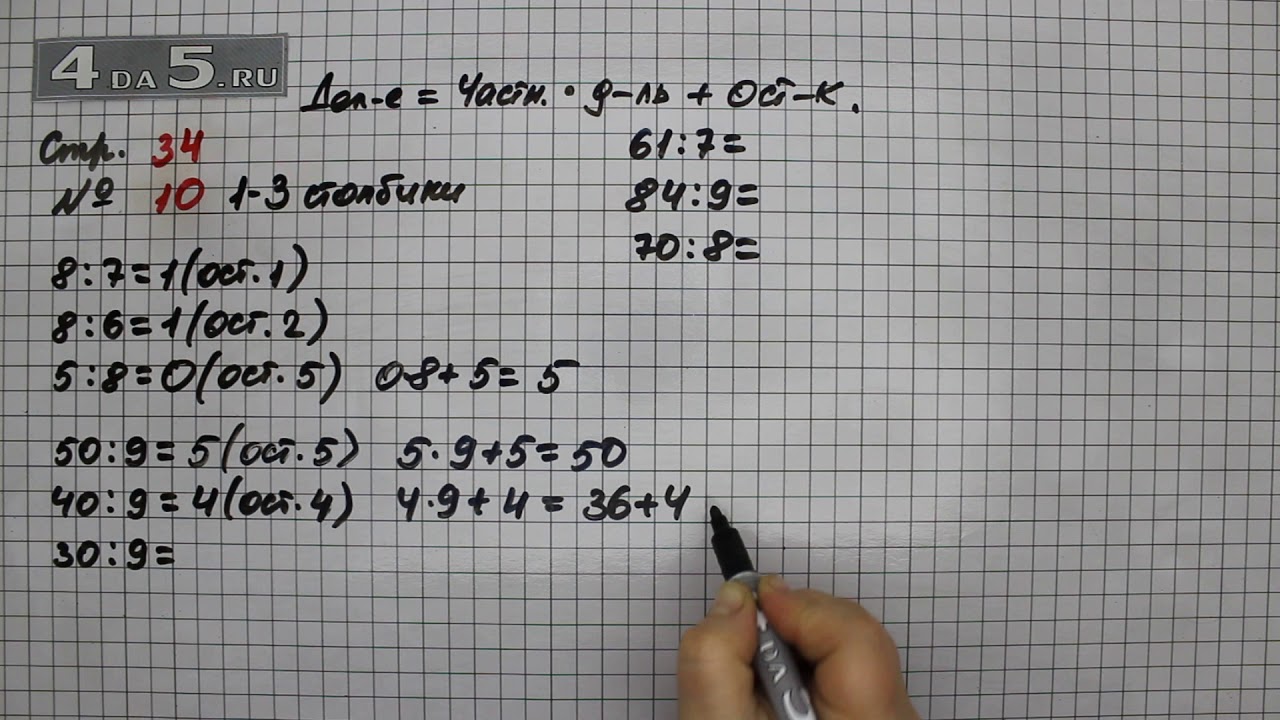 4DA5.RU
Дел-е = Частн. · д-ль + Ост-к.
Стр. 34
№ 10 1-3 столбики
8:7=1(ост.1)
8:6=1(ост.2)
5:8=0(ост.5) 0·8+5=5
50:9=5(ост.5) 5·9+5=50
40:9=4(ост.4) 4·9+4=36+4
30:9=
61:7=
84:9=
70:8=
DA 5